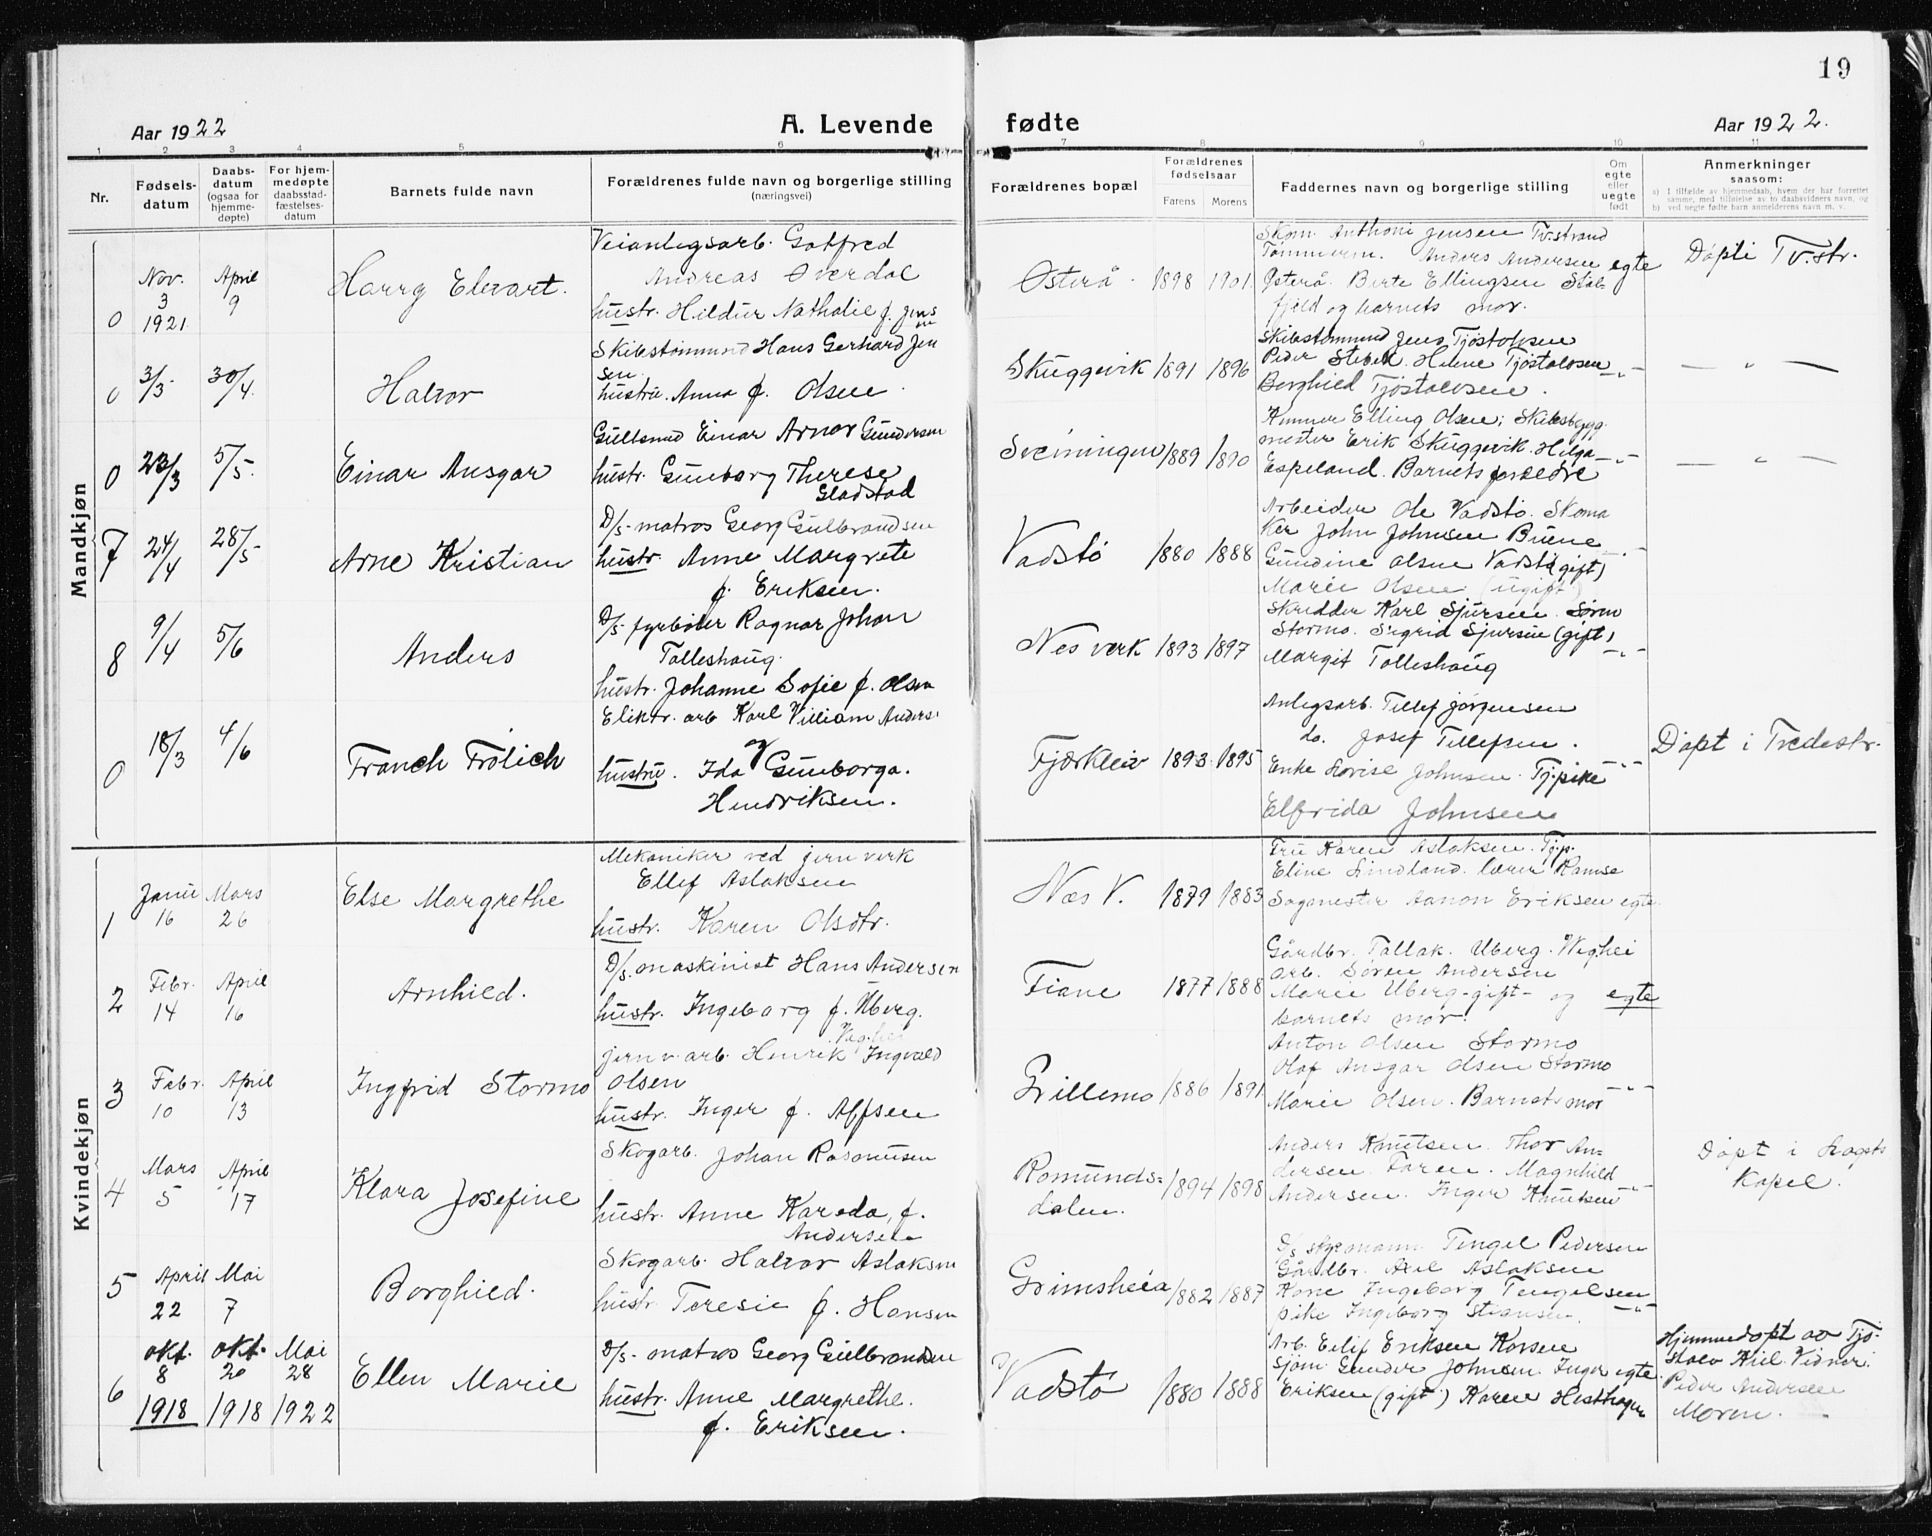 19
Aar 1922
A. Levende fødte
Aar 1922.
1 2 3 4 5 6 7 8 9 10 11
Nr.
Fødselsdatum
Daabsdatum (ogsaa for hjemmedøpte)
For hjemmedøpte daabsstadfæstelsesdatum
Barnets fulde navn
Forældrenes fulde navn og borgerlige stilling
(næringsvei)
Forældrenes bopæl
Forældrenes fødselsaar
Farens Morens
Faddernes navn og borgerlige stilling
Om egte eller uegte født
Anmerkninger
saasom:
a) I tilfælde av hjemmedaab, hvem der har forrettet
samme, med tilføielse av to daabsvidners navn, og
b) ved uegte fødte barn anmelderens navn m. v.
Mandkjøn
0
Nov. 3 1921
April 9
Harry Elevart.
Veianlegsarb. Gotfred
Andreas Øverdal
hustr. Hildur Nathalie f. Jensen
Østerå
1898 1901
Skom. Anthoni Jensen Tv.strand
Tømmerm. Anders Andersen
Østerå. Berte Ellingsen Stat-
fjeld og barnets mor.
egte
Døpt i Tv.str.
0
3/3
30/4
Halvor
Skibstømmerm. Hans Gerhard Jen
sen.
hustru. Anna f. Olsen.
Skuggevik
1891 1896
Skibstømmerm. Jens Tjøstolvsen
Peder Steben. Helene Tjøstolvsen
Borghild Tjøstolvsen.
- " -
- " -
0
23/3
5/5
Einar Ansgar
Gullsmed Einar Arnor Gundersen
hustr. Gunborg Therese
Gladstad
Sveiningen
1889 1890
Kemner Elling Olsen; Skibsbygg
mester Erik Skuggevik. Helga
Espeland. Barnets foreldre
- " -
- " -
7
24/4
28/5
Arne Kristian
D/s- matros Georg Gulbrandsen
hustr. Anne Margrete
f. Eriksen.
Vadstø
1880 1888
Arbeider Ole Vadstø. Skoma
ker John Johnsen Buene
Gundine Olsen Vadstø (gift)
Marie Olsen (ugift)
8
9/4
5/6
Anders
D/s- fyrbøter Ragnar Johan
Talleshaug.
hustr. Johanne Sofie f. Olsen
Nes verk
1893 1897
Skredder Karl Sjursen. Søren
Stormo. Sigrid Sjursen (gift)
Margit Tolleshaug
- " -
0
18/3
4/6
Franch Frölich
Elektr. arb Karl Villiam Anders.
og
hustru. Ida Gunborga.
Hendriksen.
Fjærkleiv
1893 1895
Anlegsarb. Tellef Jørgensen
do. Josef Tellefsen.
Enke Lovise Johnsen. Tj.pike
Elfrida Johnsen
- " -
Døpt i Tvedestr.
Kvindekjøn
1
Janu 16
Mars 26
Else Margrethe
Mekaniker ved jernverk
Ellef Aslaksen
hustr. Karen Olsdtr.
Næs V.
1879 1883
Fru Karen Aslaksen. Tjp.
Eline Lindland. lærer Ramse
Sagmester Aanon Eriksen
egte.
2
Febr. 14
April 16
Arnhild.
D/s. maskinist Hans Andersen
hustr. Ingeborg f. Uberg.
Veghei
Fiane
1877 1888
Gårdbr. Tallak. Uberg. Veghei
arb. Søren Andersen
Marie Uberg -gift- og
barnets mor.
egte
3
Febr. 10
April 13
Ingfrid Stormo
jernv. arb. Henrik Ingvald
Olsen
hustr. Inger f. Alfsen
Grillemo
1886 1891
Anton Olsen Stormo
Olaf Ansgar Olsen Stormo
Marie Olsen. Barnets mor
- " -
4
Mars 5
April 17
Klara Josefine
Skogarb. Johan Rasmussen
hustr. Anne Karoda, f.
Andersen
Romunds-
dalen.
1894 1898
Anders Knutsen. Thor An-
dersen. Faren. Magnhild
Andersen. Inger Knutsen
- " -
Døpt i
Kapel.
5
April 22
Mai 7
Borghild.
Skogarb. Halvor Aslaksen
hustr. Teresie f. Hansen
Grimsheia
1882 1887
D/s styrmann Tengel Pedersen
Gårdbr. Axel Aslaksen
Kone Ingeborg Tengelsen
pike Ingeborg
- " -
6
okt. 8 1918
okt. 20 1918
Mai 28 1922
Ellen Marie
D/s- matros Georg Gulbrandsen
hustr. Anne Margrethe.
f. Eriksen.
Vadstø
1880 1888
Arb. Eilif Eriksen Korsen
Sjøm. Gunder Johnsen. Inger
Eriksen (gift) Karen Hesthagen
egte.
Hjemmedøpt av Tjø-
stolv Vidner:
Peder Andersen
Moren.